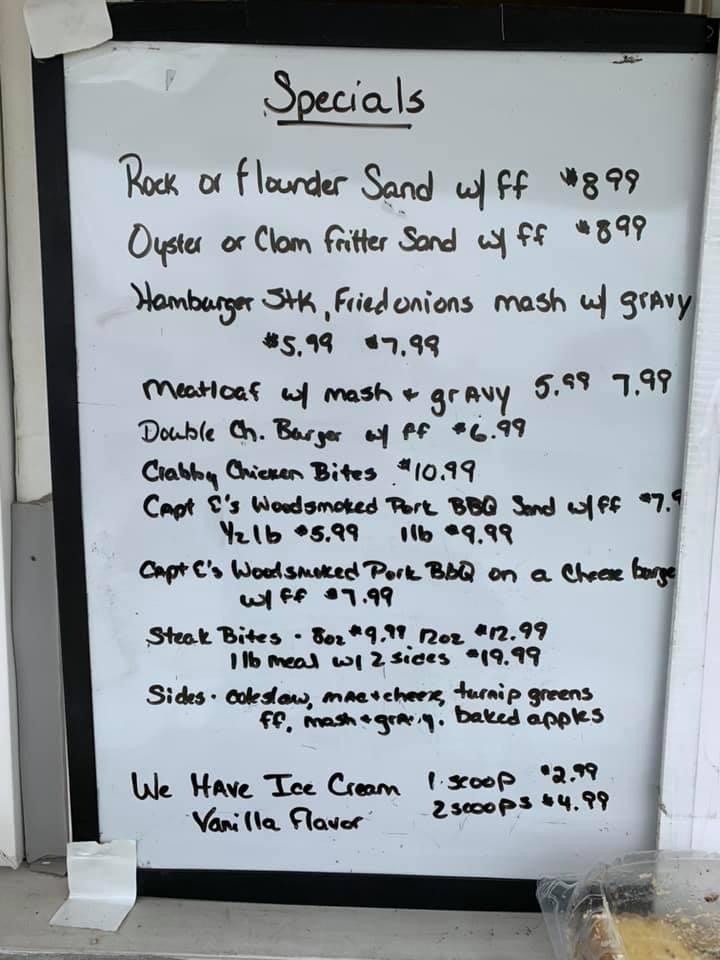 Specials
Rock or flounder Sand w/ ff $8.99
Oyster or Clam fritter Sand w/ ff $8.99
Hamburger Stk, Fried onions mash w/ grAvy
$5.99 $7.99
Meatloaf w/ mash + grAvy 5.99 7.99
Double Ch. Burger w/ ff $6.99
Crabby Chicken Bites $10.99
Capt E's Woodsmoked Pork BBQ Sand w/ ff $7.9
1/2 lb $5.99 1 lb $9.99
Capt E's Woodsmoked Pork BBQ on a Cheese burge
w/ ff $7.99
Steak Bites - 8oz $9.99 12oz $12.99
1 lb meal w/ 2 sides $19.99
Sides - coleslaw, mac + cheese, turnip greens
ff, mash + gravy, baked apples
We HAve Ice Cream 1 scoop $2.99
Vanilla Flavor 2 scoops $4.99